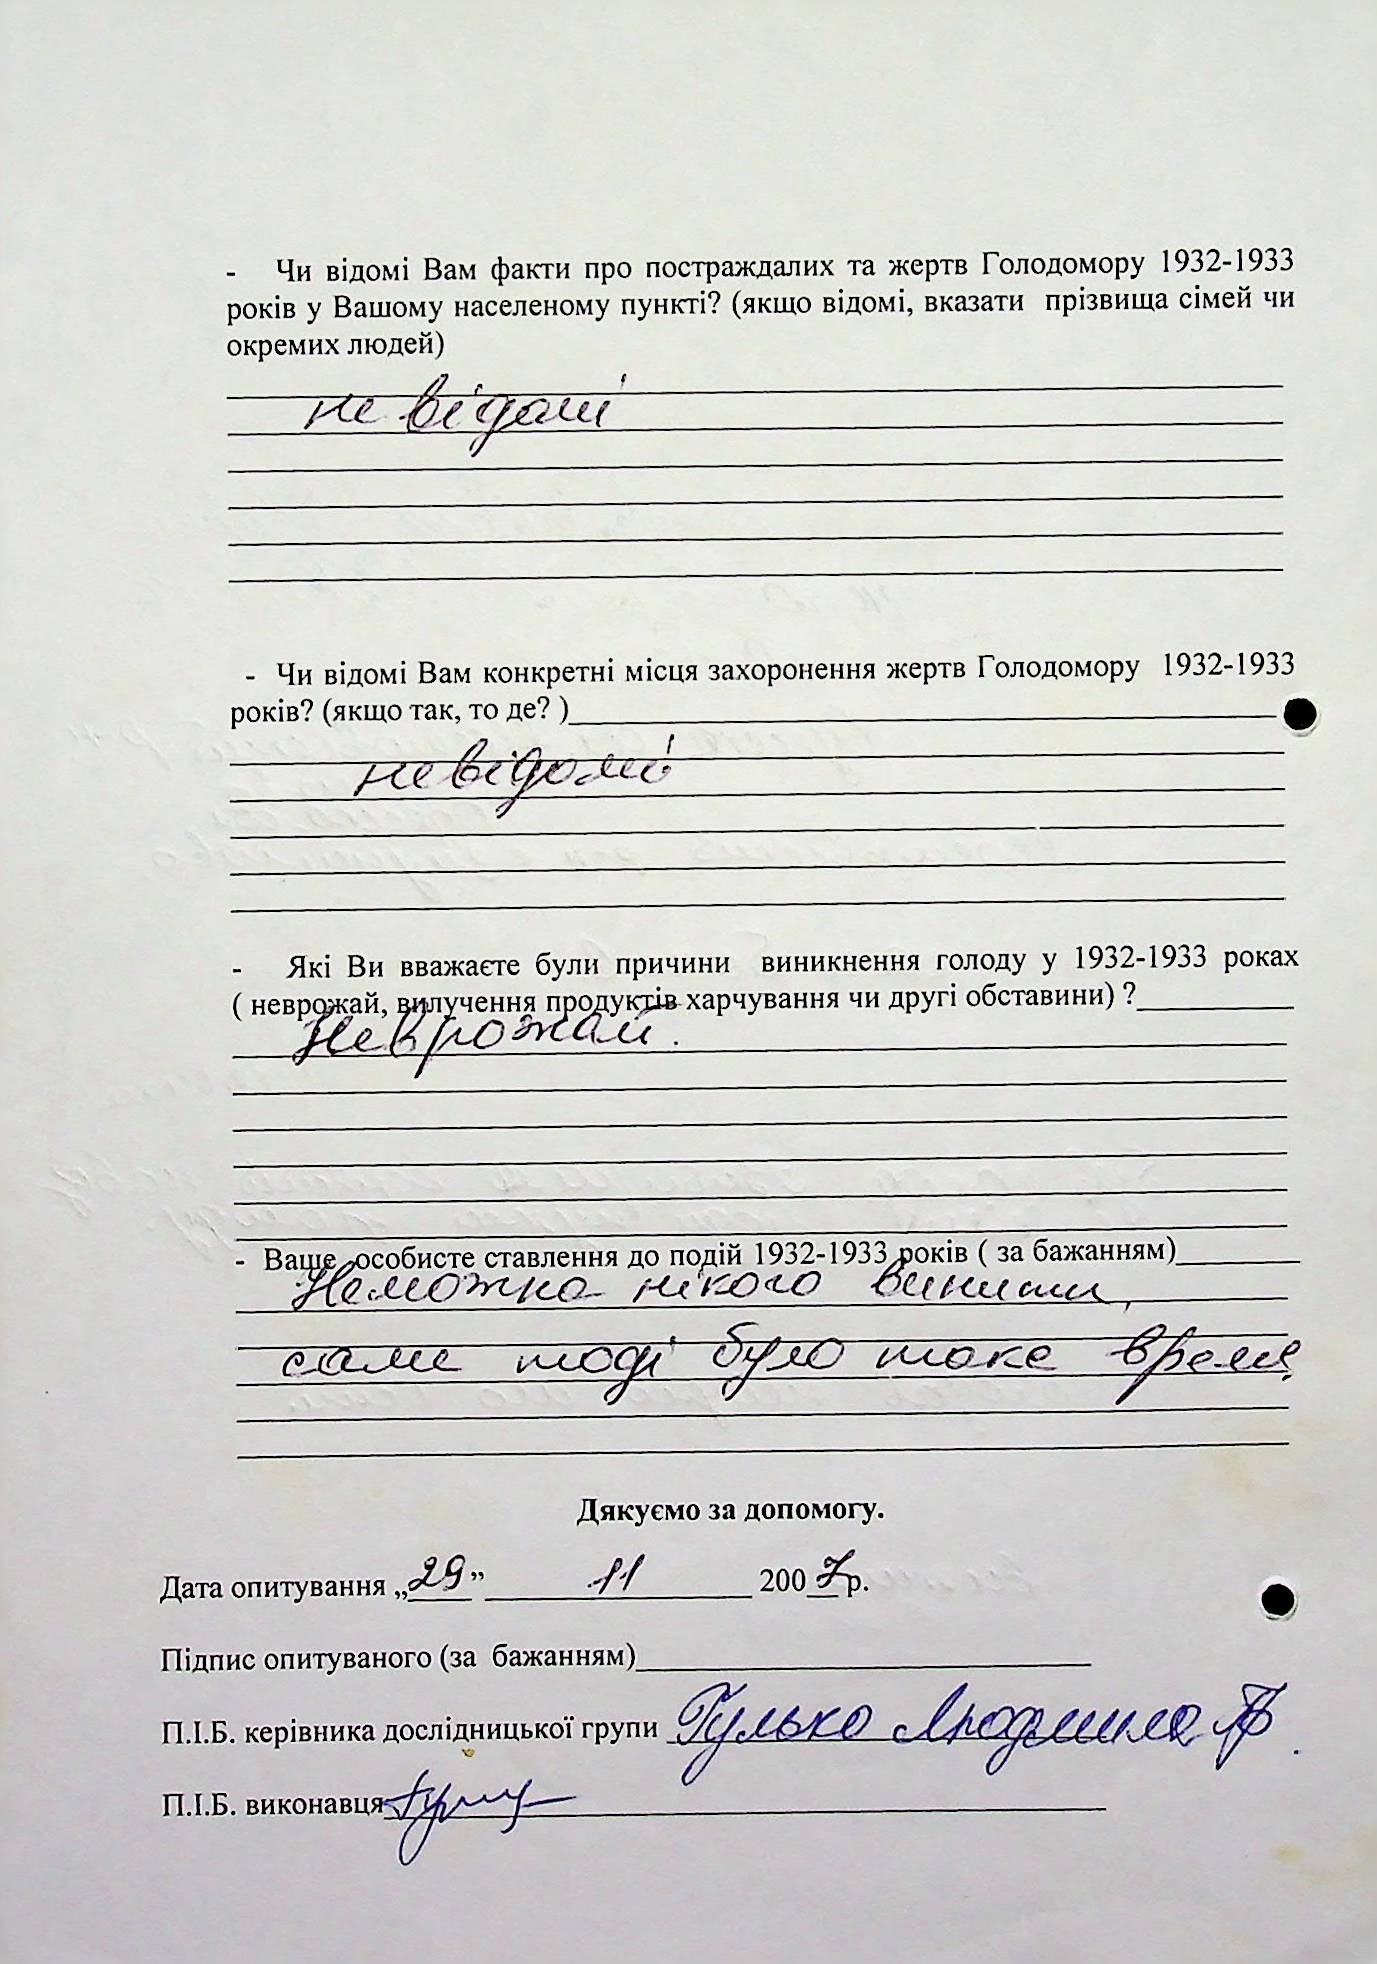 - Чи відомі Вам факти про постраждалих та жертв Голодомору 1932-1933
років у Вашому населеному пункті? (якщо відомі, вказати прізвища сімей чи
окремих людей)
не відомі
- Чи відомі Вам конкретні місця захоронення жертв Голодомору 1932-1933
років? (якщо так, то де? )
невідомі
- Які Ви вважаєте були причини виникнення голоду у 1932-1933 роках
( неврожай, вилучення продуктів харчування чи другі обставини) ?
Неврожай.
- Ваше особисте ставлення до подій 1932-1933 років ( за бажанням)
Неможна нікого винити,
саме тоді було таке время
Дякуємо за допомогу.
Дата опитування „29” 11 2007р.
Підпис опитуваного (за бажанням)
П.І.Б. керівника дослідницької групи Гулько Людмила
П.І.Б. виконавця